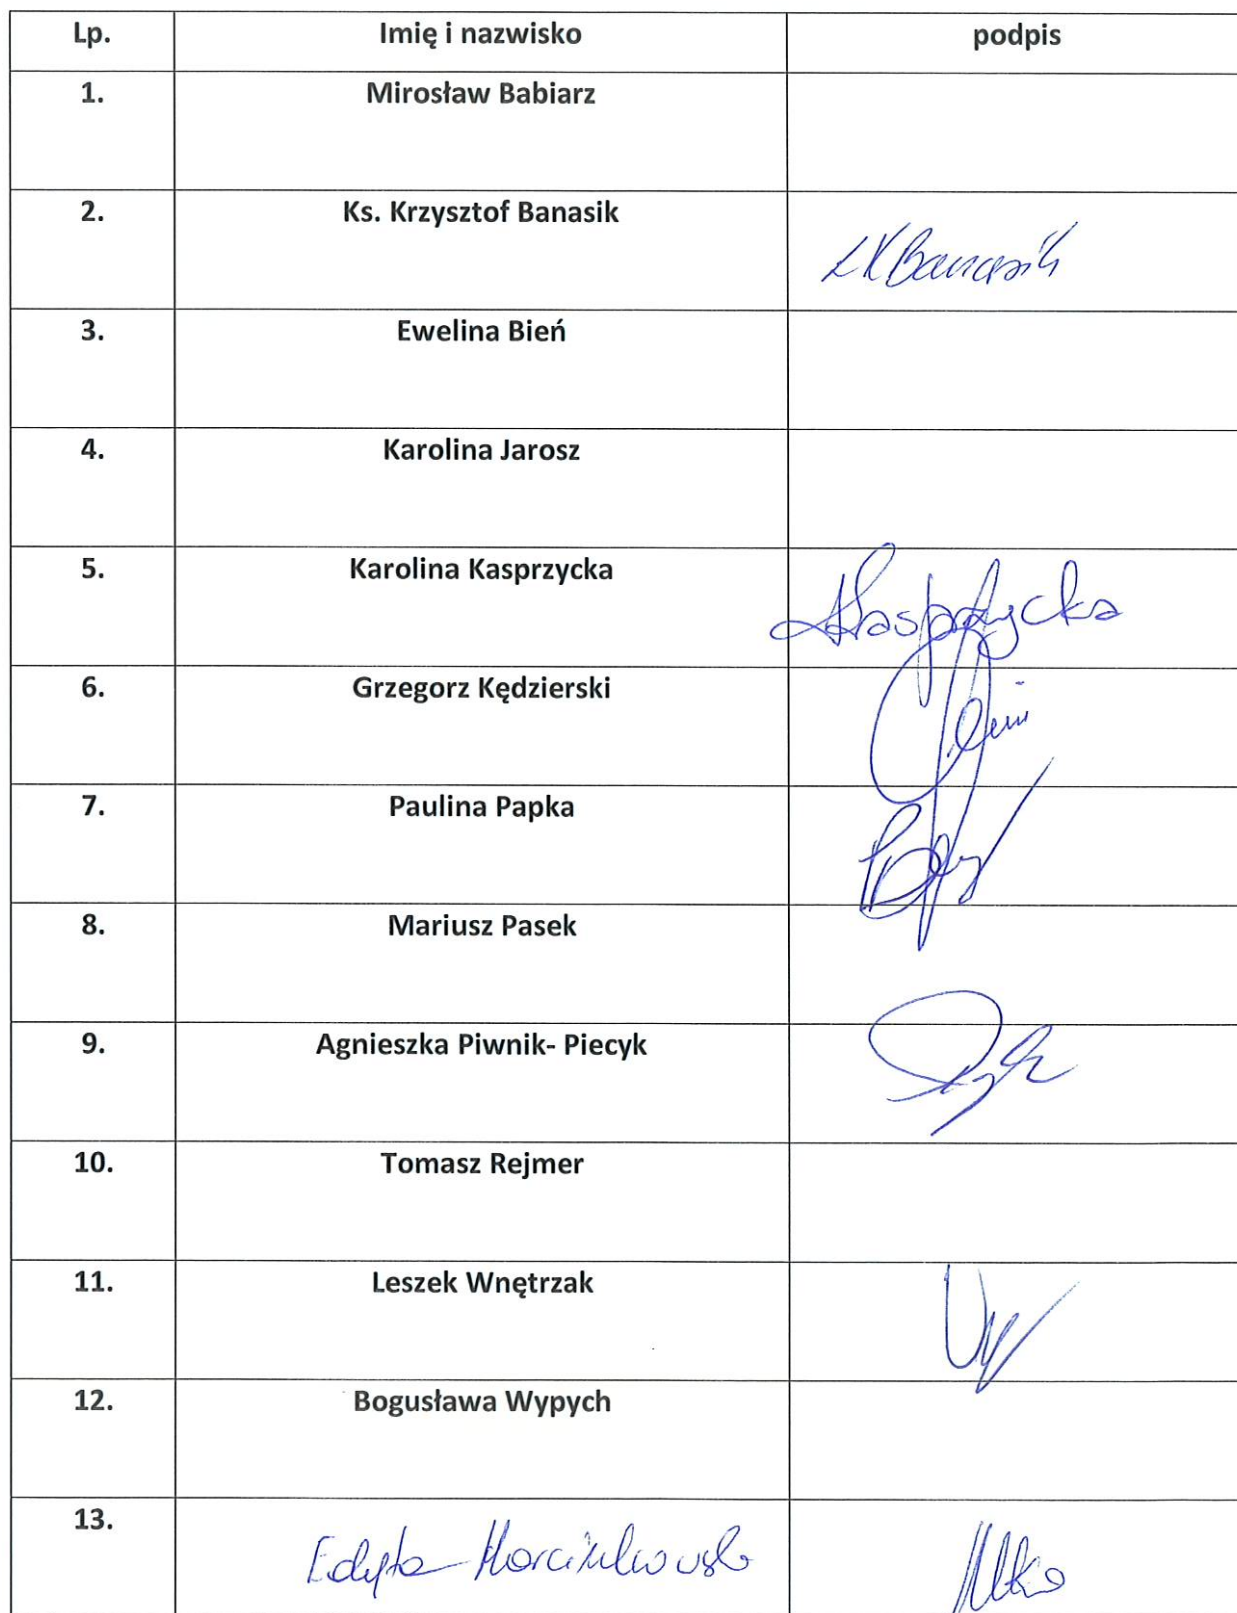 Lp. Imię i nazwisko podpis
1. Mirosław Babiarz
2. Ks. Krzysztof Banasik KBanasik
3. Ewelina Bień
4. Karolina Jarosz
5. Karolina Kasprzycka KKasprzycka
6. Grzegorz Kędzierski
7. Paulina Papka
8. Mariusz Pasek
9. Agnieszka Piwnik- Piecyk
10. Tomasz Rejmer
11. Leszek Wnętrzak
12. Bogusława Wypych
13. Edyta